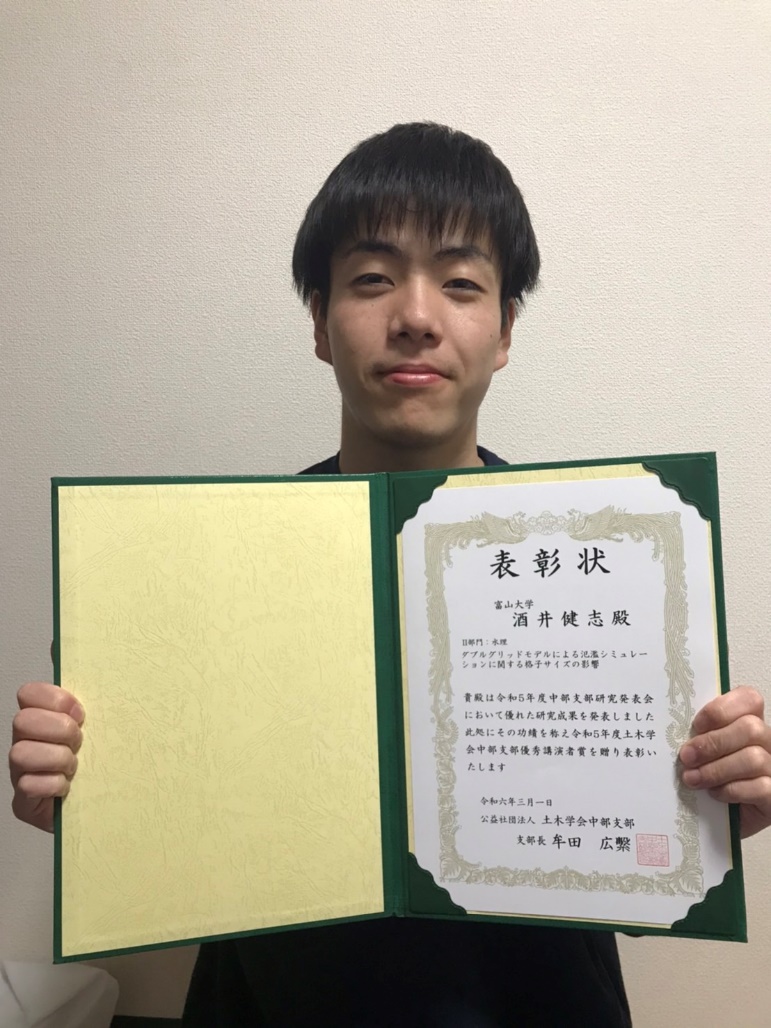 表彰状
富山大学
酒井健志殿
II部門:水理
ダブルグリッドモデルによる氾濫シミュレー
ションに関する格子サイズの影響
貴殿は令和5年度中部支部研究発表会
において優れた研究成果を発表しました
此処にその功績を称え令和5年度土木学
会中部支部優秀講演者賞を贈り表彰い
たします
令和六年三月一日
公益社団法人 土木学会中部支部
支部長 牟田 広繫